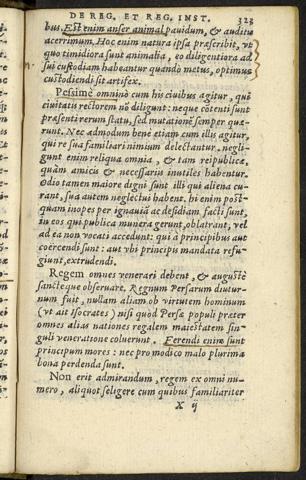 DE REG. ET REG. INST. 323
bus. Est enim anser animal pauidum, & auditu
acerrimum. Hoc enim natura ipsa præscribit, vt
quo timidiora sunt animalia, eo diligentiora ad
sui custodiam habeantur quando metus, optimus
custodiendi sit artifex.
Pessimè omninò cum his ciuibus agitur, qui
ciuitatis rectorem nō diligunt: neque cōtenti sunt
præsenti rerum statu, sed mutationē semper quæ-
runt. Nec admodum benè etiam cum illis agitur,
qui re sua familiari nimium delectantur. negli-
gunt enim reliqua omnia, & tam reipublicæ,
quàm amicis & necessariis inutiles habentur.
Odio tamen maiore digni sunt illi qui aliena cu-
rant, sua autem neglectui habent. hi enim post-
quam inopes per ignauiā ac desidiam facti sunt,
in eos qui publica munera gerunt, oblatrant, vel
ad ea non vocati accedunt: qui à principibus aut
coërcendi sunt: aut vbi principis mandata refu-
giunt, extrudendi.
Regem omnes venerari debent, & augustè
sanctéque obseruare. Regnum Persarum diutur-
num fuit, nullam aliam ob virtutem hominum
(vt ait Isocrates) nisi quòd Persæ populi præter
omnes alias nationes regalem maiestatem sin-
guli veneratione coluerunt. Ferendi enim sunt
principum mores: nec pro modico malo plurima
bona perdenda sunt.
Non erit admirandum, regem ex omni nu-
mero, aliquot seligere cum quibus familiariter
X ij